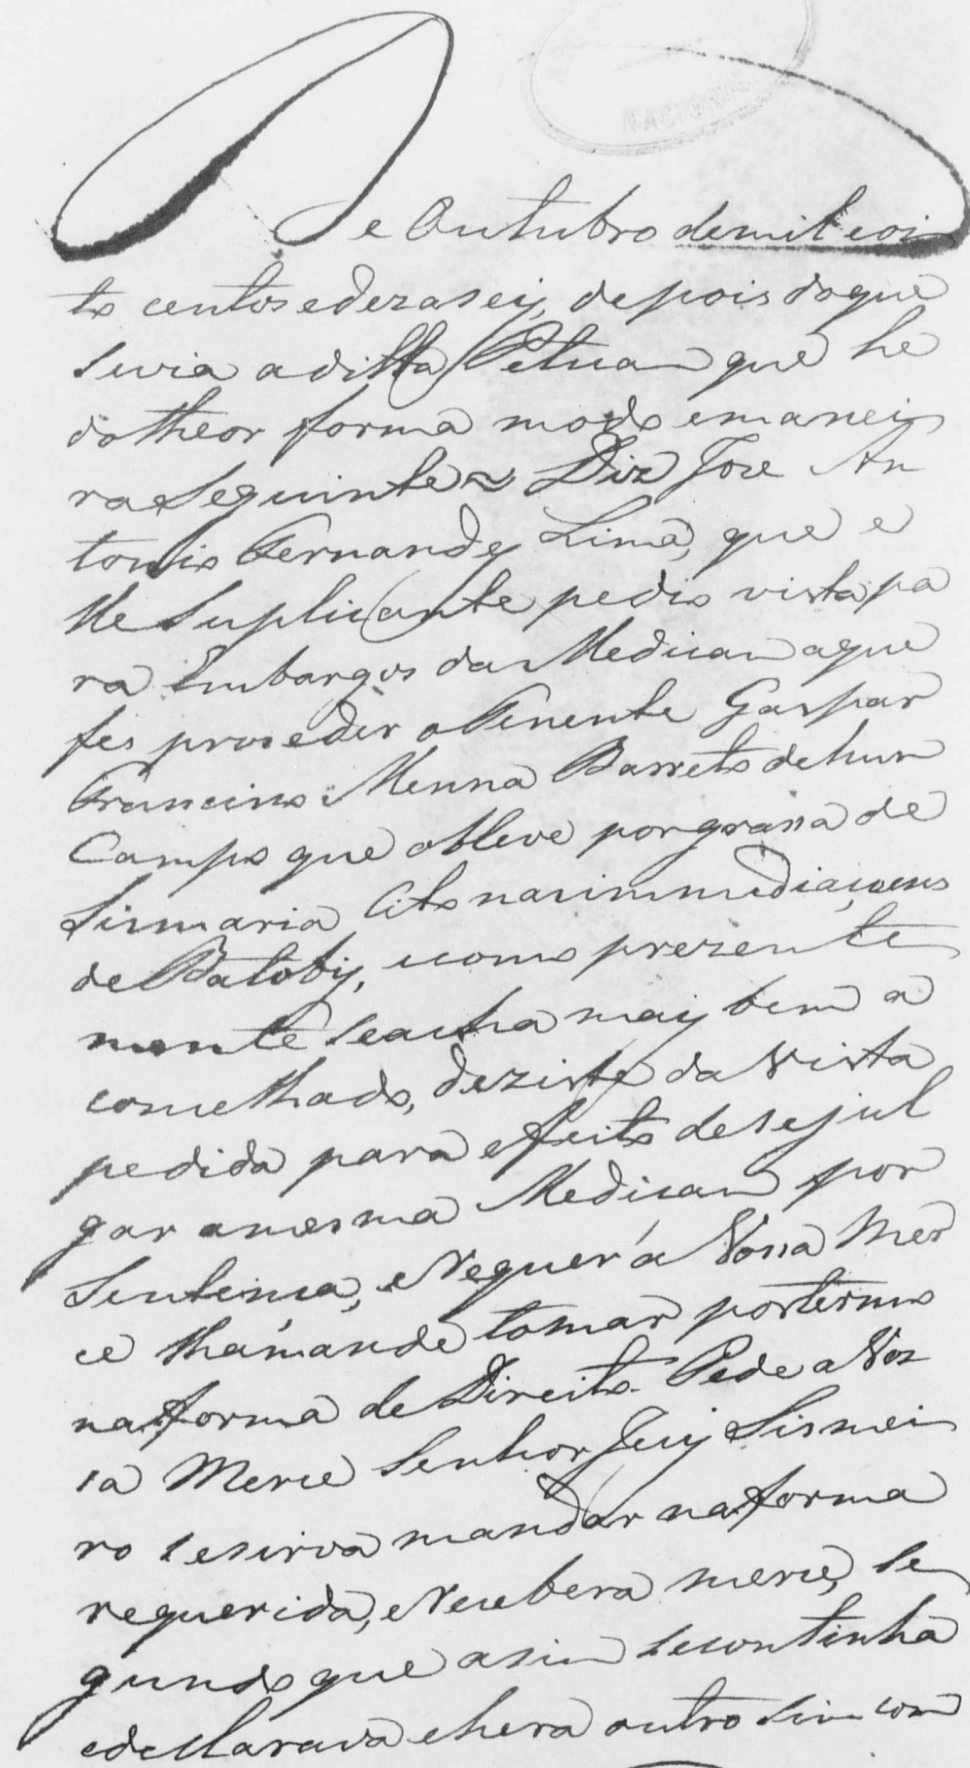 De Outubro de mil e oi
to centos e deza seis, depois do que
se via a ditta Peticam que he
do theor forma modo e manei
ra Seguinte ~ Diz Jose An
tonio Fernandes Lima, que e
lle Suplicante pedio vista pa
ra Embargos da Medicam a que
fes proseder o Tenente Gaspar
Francisco Menna Barreto de hum
Campo que obteve por grassa de
Sismaria Cito nas immediaçoens
de Batoby, e como prezente
mente se acha mais bem a
conselhado, deziste da Vista
pedida para effeito de se jul
gar a mesma Medicam por
Sentensa, e Requer a Vossa Mer
ce lha mande tomar por termo
na forma de Direito. Pede a Vos
sa Merce Senhor Juis Sismei
ro se sirva mandar na forma
requerida, e Recebera merce, Se
gundo que asim se continha
e decllarava e hera outro Sim com